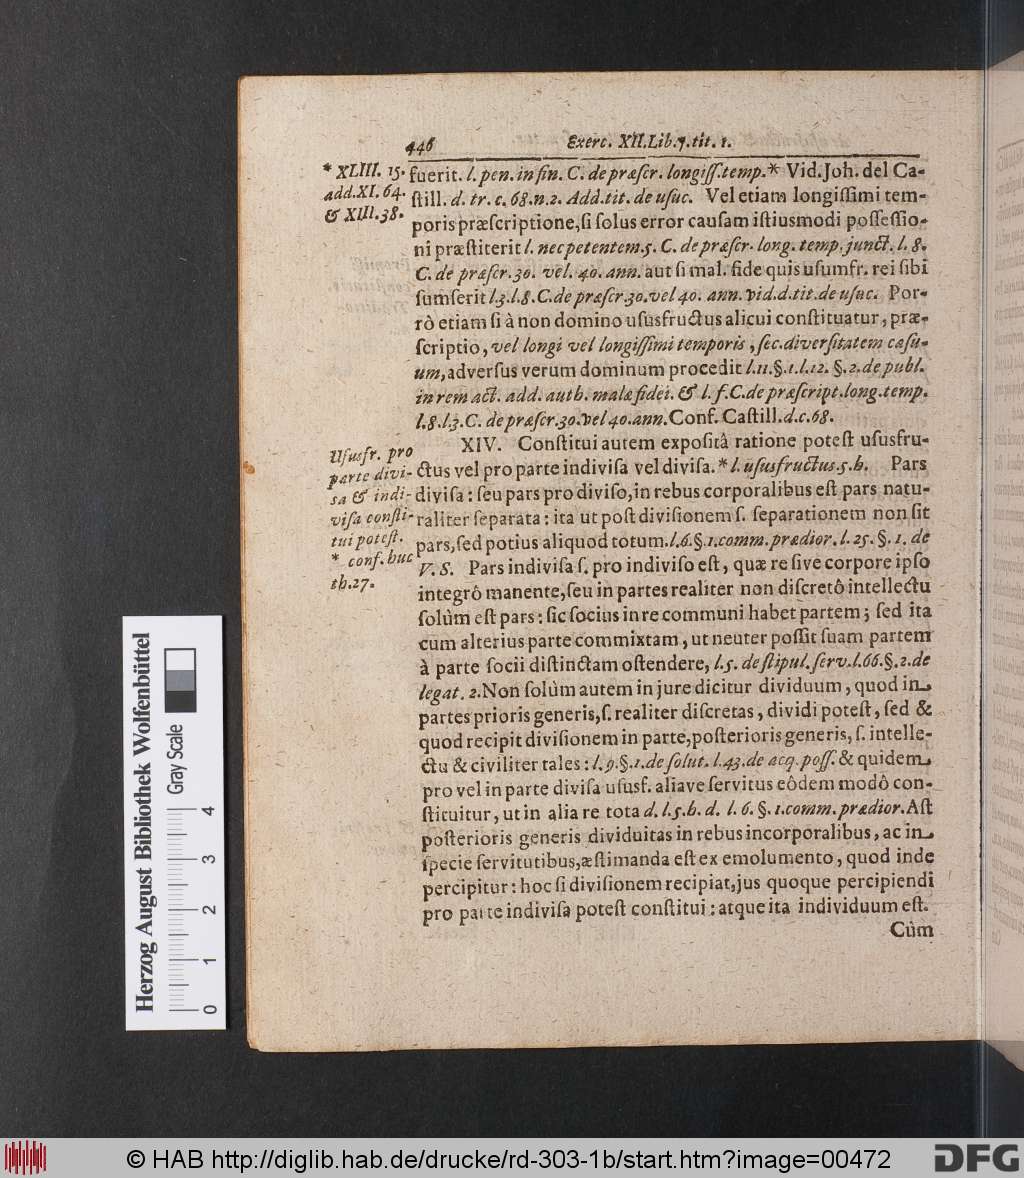 446 Exerc. XII. Lib. 7. tit. 1.
* XLIII. 15.
add. XI. 64.
& XIII. 38.
fuerit. l. pen. in fin. C. de præſcr. longiſſ. temp.* Vid. Joh. del Ca-
ſtill. d. tr. c. 68. n. 2. Add. tit. de uſuc. Vel etiam longiſſimi tem-
poris præſcriptione, ſi ſolus error cauſam iſtiusmodi poſſeſſio-
ni præſtiterit l. nec petentem. 5. C. de præſcr. long. temp. junct. l. 8.
C. de præſcr. 30. vel. 40. ann. aut ſi mal. fide quis uſumfr. rei ſibi
ſumſerit l. 3. l. 8. C. de præſcr. 30. vel 40. ann. vid. d. tit. de uſuc. Por-
rò etiam ſi à non domino uſusfructus alicui conſtituatur, præ-
ſcriptio, vel longi vel longiſſimi temporis, ſec. diverſitatem caſu-
um, adverſus verum dominum procedit l. 11. §. 1. l. 12. §. 2. de publ.
in rem act. add. auth. malæ fidei. & l. f. C. de præſcript. long. temp.
l. 8. l. 3. C. de præſcr. 30. vel 40. ann. Conf. Caſtill. d. c. 68.
Uſusfr. pro
parte divi-
sa & indi-
viſa conſti-
tui poteſt.
* conf. huc
th. 27.
XIV. Conſtitui autem expoſitâ ratione poteſt uſusfru-
ctus vel pro parte indiviſa vel diviſa.* l. uſusfructus. 5. h. Pars
diviſa: ſeu pars pro diviſo, in rebus corporalibus eſt pars natu-
raliter ſeparata: ita ut poſt diviſionem ſ. ſeparationem non ſit
pars, ſed potius aliquod totum. l. 6. §. 1. comm. prædior. l. 25. §. 1. de
V. S. Pars indiviſa ſ. pro indiviſo eſt, quæ re ſive corpore ipſo
integrô manente, ſeu in partes realiter non diſcretô intellectu
ſolùm eſt pars: ſic ſocius in re communi habet partem; ſed ita
cum alterius parte commixtam, ut neuter poſſit ſuam partem
à parte ſocii diſtinctam oſtendere, l. 5. de ſtipul. ſerv. l. 66. §. 2. de
legat. 2. Non ſolùm autem in jure dicitur dividuum, quod in
partes prioris generis, ſ. realiter diſcretas, dividi poteſt, ſed &
quod recipit diviſionem in parte, poſterioris generis, ſ. intelle-
ctu & civiliter tales: l. 9. §. 1. de ſolut. l. 43. de acq. poſſ. & quidem
pro vel in parte diviſa uſusf. aliave ſervitus eôdem modô con-
ſtituitur, ut in alia re tota d. l. 5. h. d. l. 6. §. 1. comm. prædior. Aſt
poſterioris generis dividuitas in rebus incorporalibus, ac in
ſpecie ſervitutibus, æſtimanda eſt ex emolumento, quod inde
percipitur: hoc ſi diviſionem recipiat, jus quoque percipiendi
pro parte indiviſa poteſt conſtitui: atque ita individuum eſt.
Cùm
Herzog August Bibliothek Wolfenbüttel
Gray Scale
0 1 2 3 4
© HAB http://diglib.hab.de/drucke/rd-303-1b/start.htm?image=00472
DFG